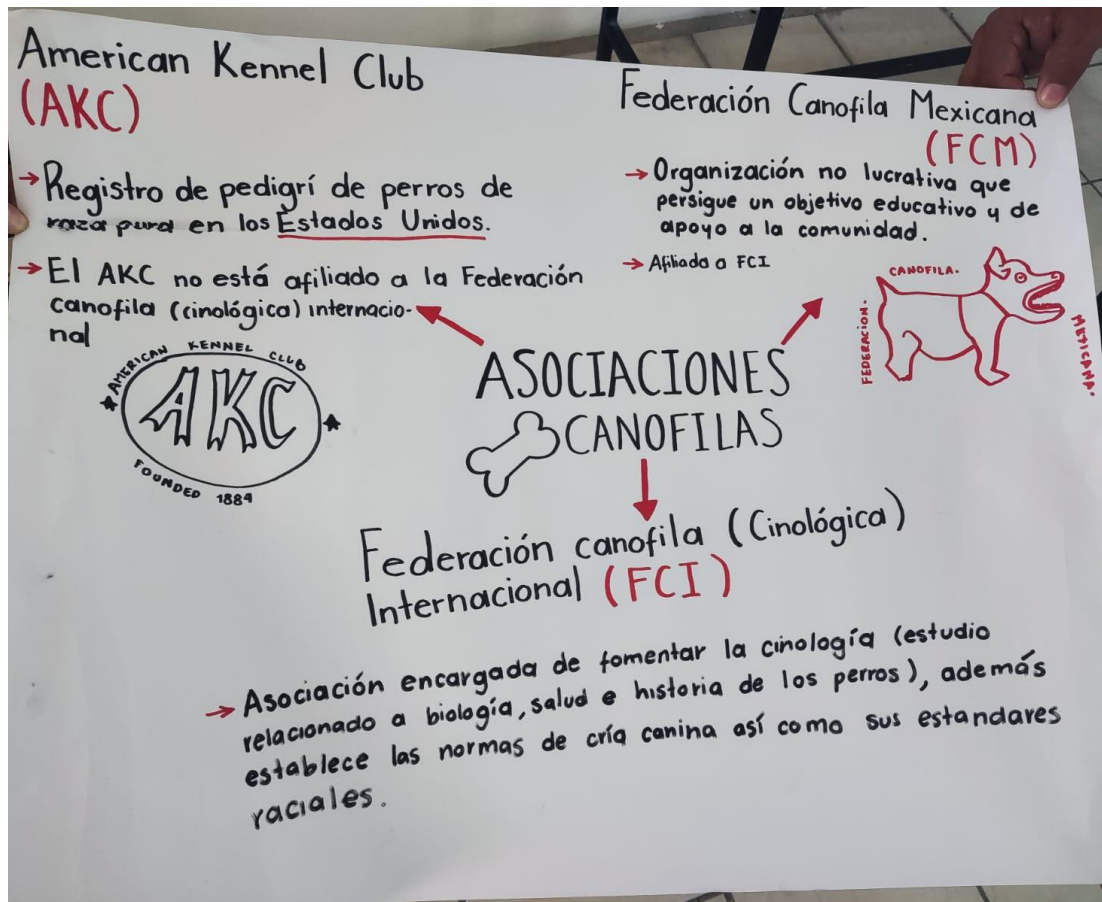 American Kennel Club
(AKC)
→ Registro de pedigrí de perros de
raza pura en los Estados Unidos.
→ El AKC no está afiliado a la Federación
canofila (cinológica) internacio-
nal
AMERICAN KENNEL CLUB
AKC
FOUNDED 1884
Federación Canofila Mexicana
(FCM)
→ Organización no lucrativa que
persigue un objetivo educativo y de
apoyo a la comunidad.
→ Afiliada a FCI
FEDERACION.
CANOFILA.
MEXICANA.
ASOCIACIONES
CANOFILAS
Federación canofila (Cinológica)
Internacional (FCI)
→ Asociación encargada de fomentar la cinología (estudio
relacionado a biología, salud e historia de los perros), además
establece las normas de cría canina así como sus estandares
raciales.